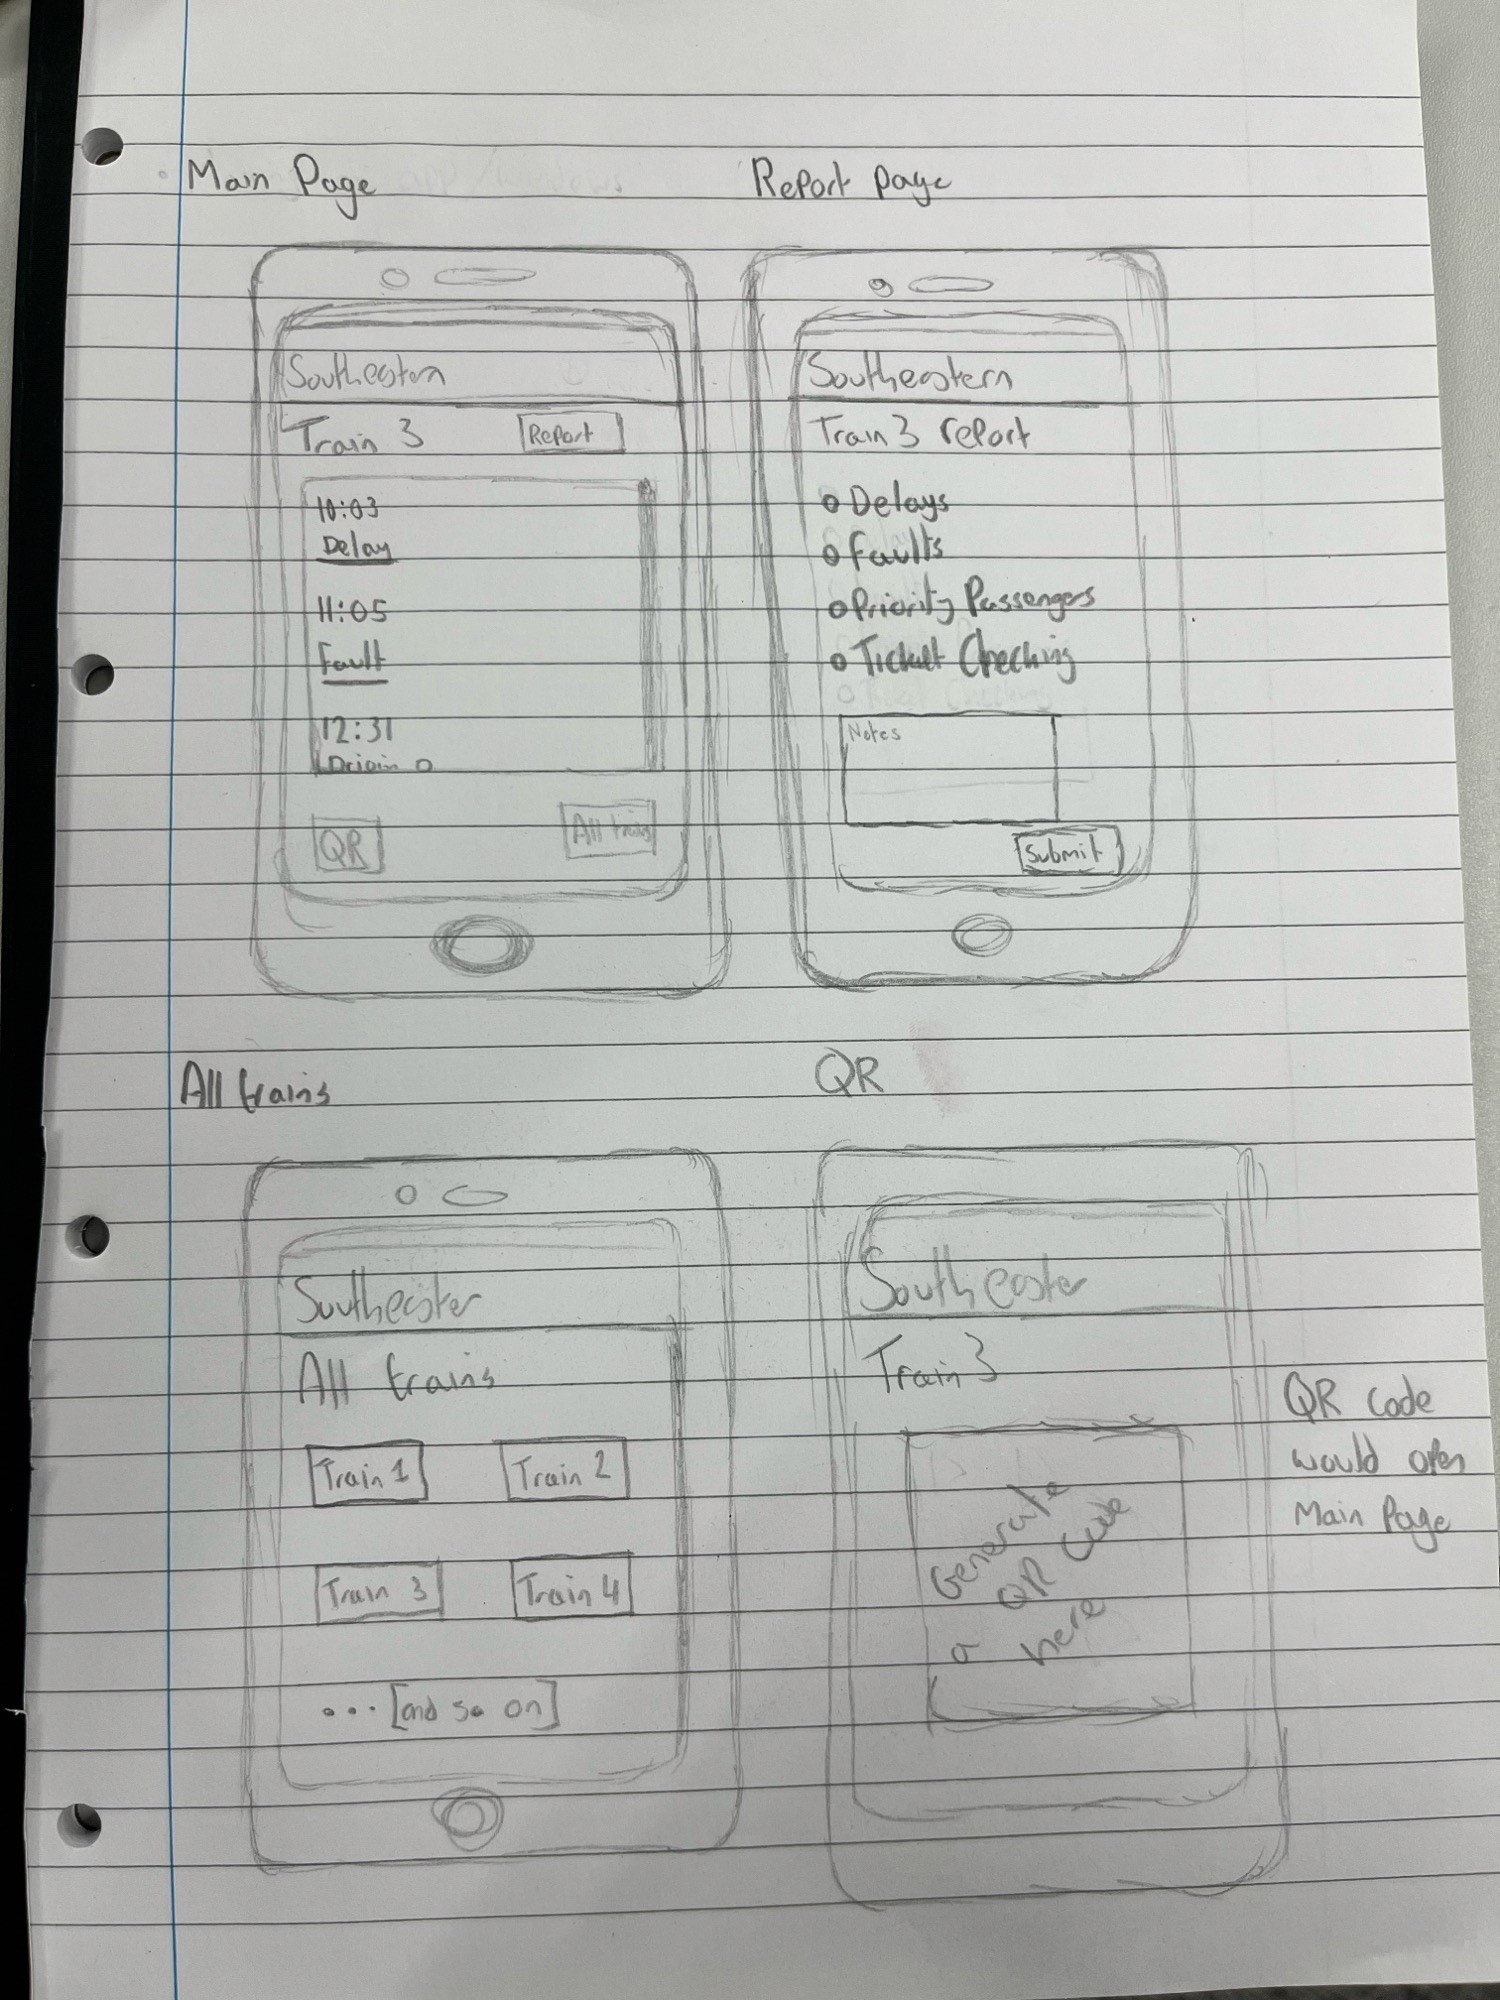 Main Page
Southeastern
Train 3
Report
10:03
Delay
11:05
Fault
12:31
QR
All trains
Report page
Southeastern
Train 3 report
Delays
Faults
Priority Passengers
Ticket Checking
Notes
Submit
All trains
Southeaster
All trains
Train 1
Train 2
Train 3
Train 4
... [and so on]
QR
Southeaster
Train 3
Generate
a QR code
here
QR code
would open
Main Page